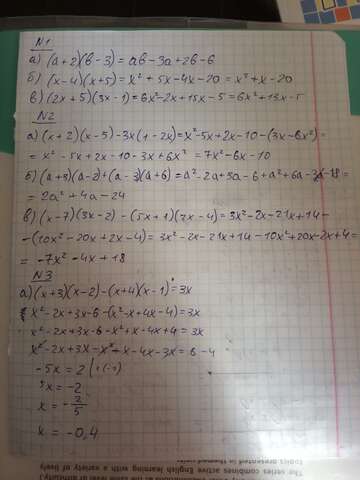 N1
а) (a+2)(b-3) = ab-3a+2b-6
б) (x-4)(x+5) = x² + 5x-4x-20 = x²+x-20
в) (2x+5)(3x-1) = 6x²-2x+15x-5 = 6x²+13x-5
N2
а) (x+2)(x-5)-3x(1-2x) = x²-5x+2x-10-(3x-6x²) =
= x² - 5x+2x-10-3x+6x² = 7x²-6x-10
б) (a+3)(a-2)+(a-3)(a+6) = a²-2a+3a-6+a²+6a-3a-18 =
= 2a²+4a-24
в) (x-7)(3x-2) - (5x+1)(2x-4) = 3x²-2x-21x+14-
-(10x²-20x+2x-4) = 3x²-2x-21x+14-10x²+20x-2x+4 =
= -7x²-4x+18
N3
а) (x+3)(x-2)-(x+4)(x-1) = 3x
x²-2x+3x-6-(x²-x+4x-4) = 3x
x²-2x+3x-6-x²+x-4x+4 = 3x
x²-2x+3x-x²+x-4x-3x = 6-4
-5x = 2 | (-1)
5x = -2
x = -2/5
x = -0,4
The series combines active English learning with a variety of lively
topics presented in themed